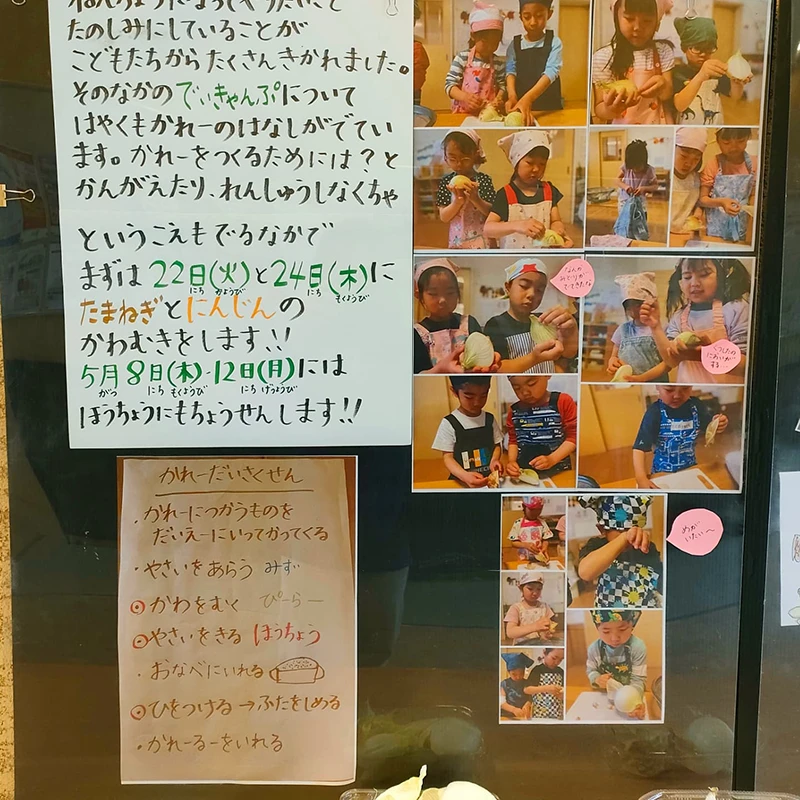 たのしみにしていることが
こどもたちからたくさんきかれました。
そのなかの でぃきゃんぷについて
はやくもかれーのはなしがでてい
ます。かれーをつくるためには？と
かんがえたり、れんしゅうしなくちゃ
というこえもでるなかで
まずは 22日(火)と24日(木)に
にち かようび にち もくようび
たまねぎとにんじんの
かわむきをします!!
5月8日(木)・12日(月)には
がつ にち もくようび にち げつようび
ほうちょうにもちょうせんします!!
かれーだいさくせん
・かれーにつかうものを
だいえーにいってかってくる
・やさいをあらう みず
・かわをむく ぴーらー
・やさいをきる ほうちょう
・おなべにいれる
・ひをつける→ふたをしめる
・かれーるーをいれる
なんか
みどりが
でてきたな
くつしたの
においが
する
めが
いたい〜